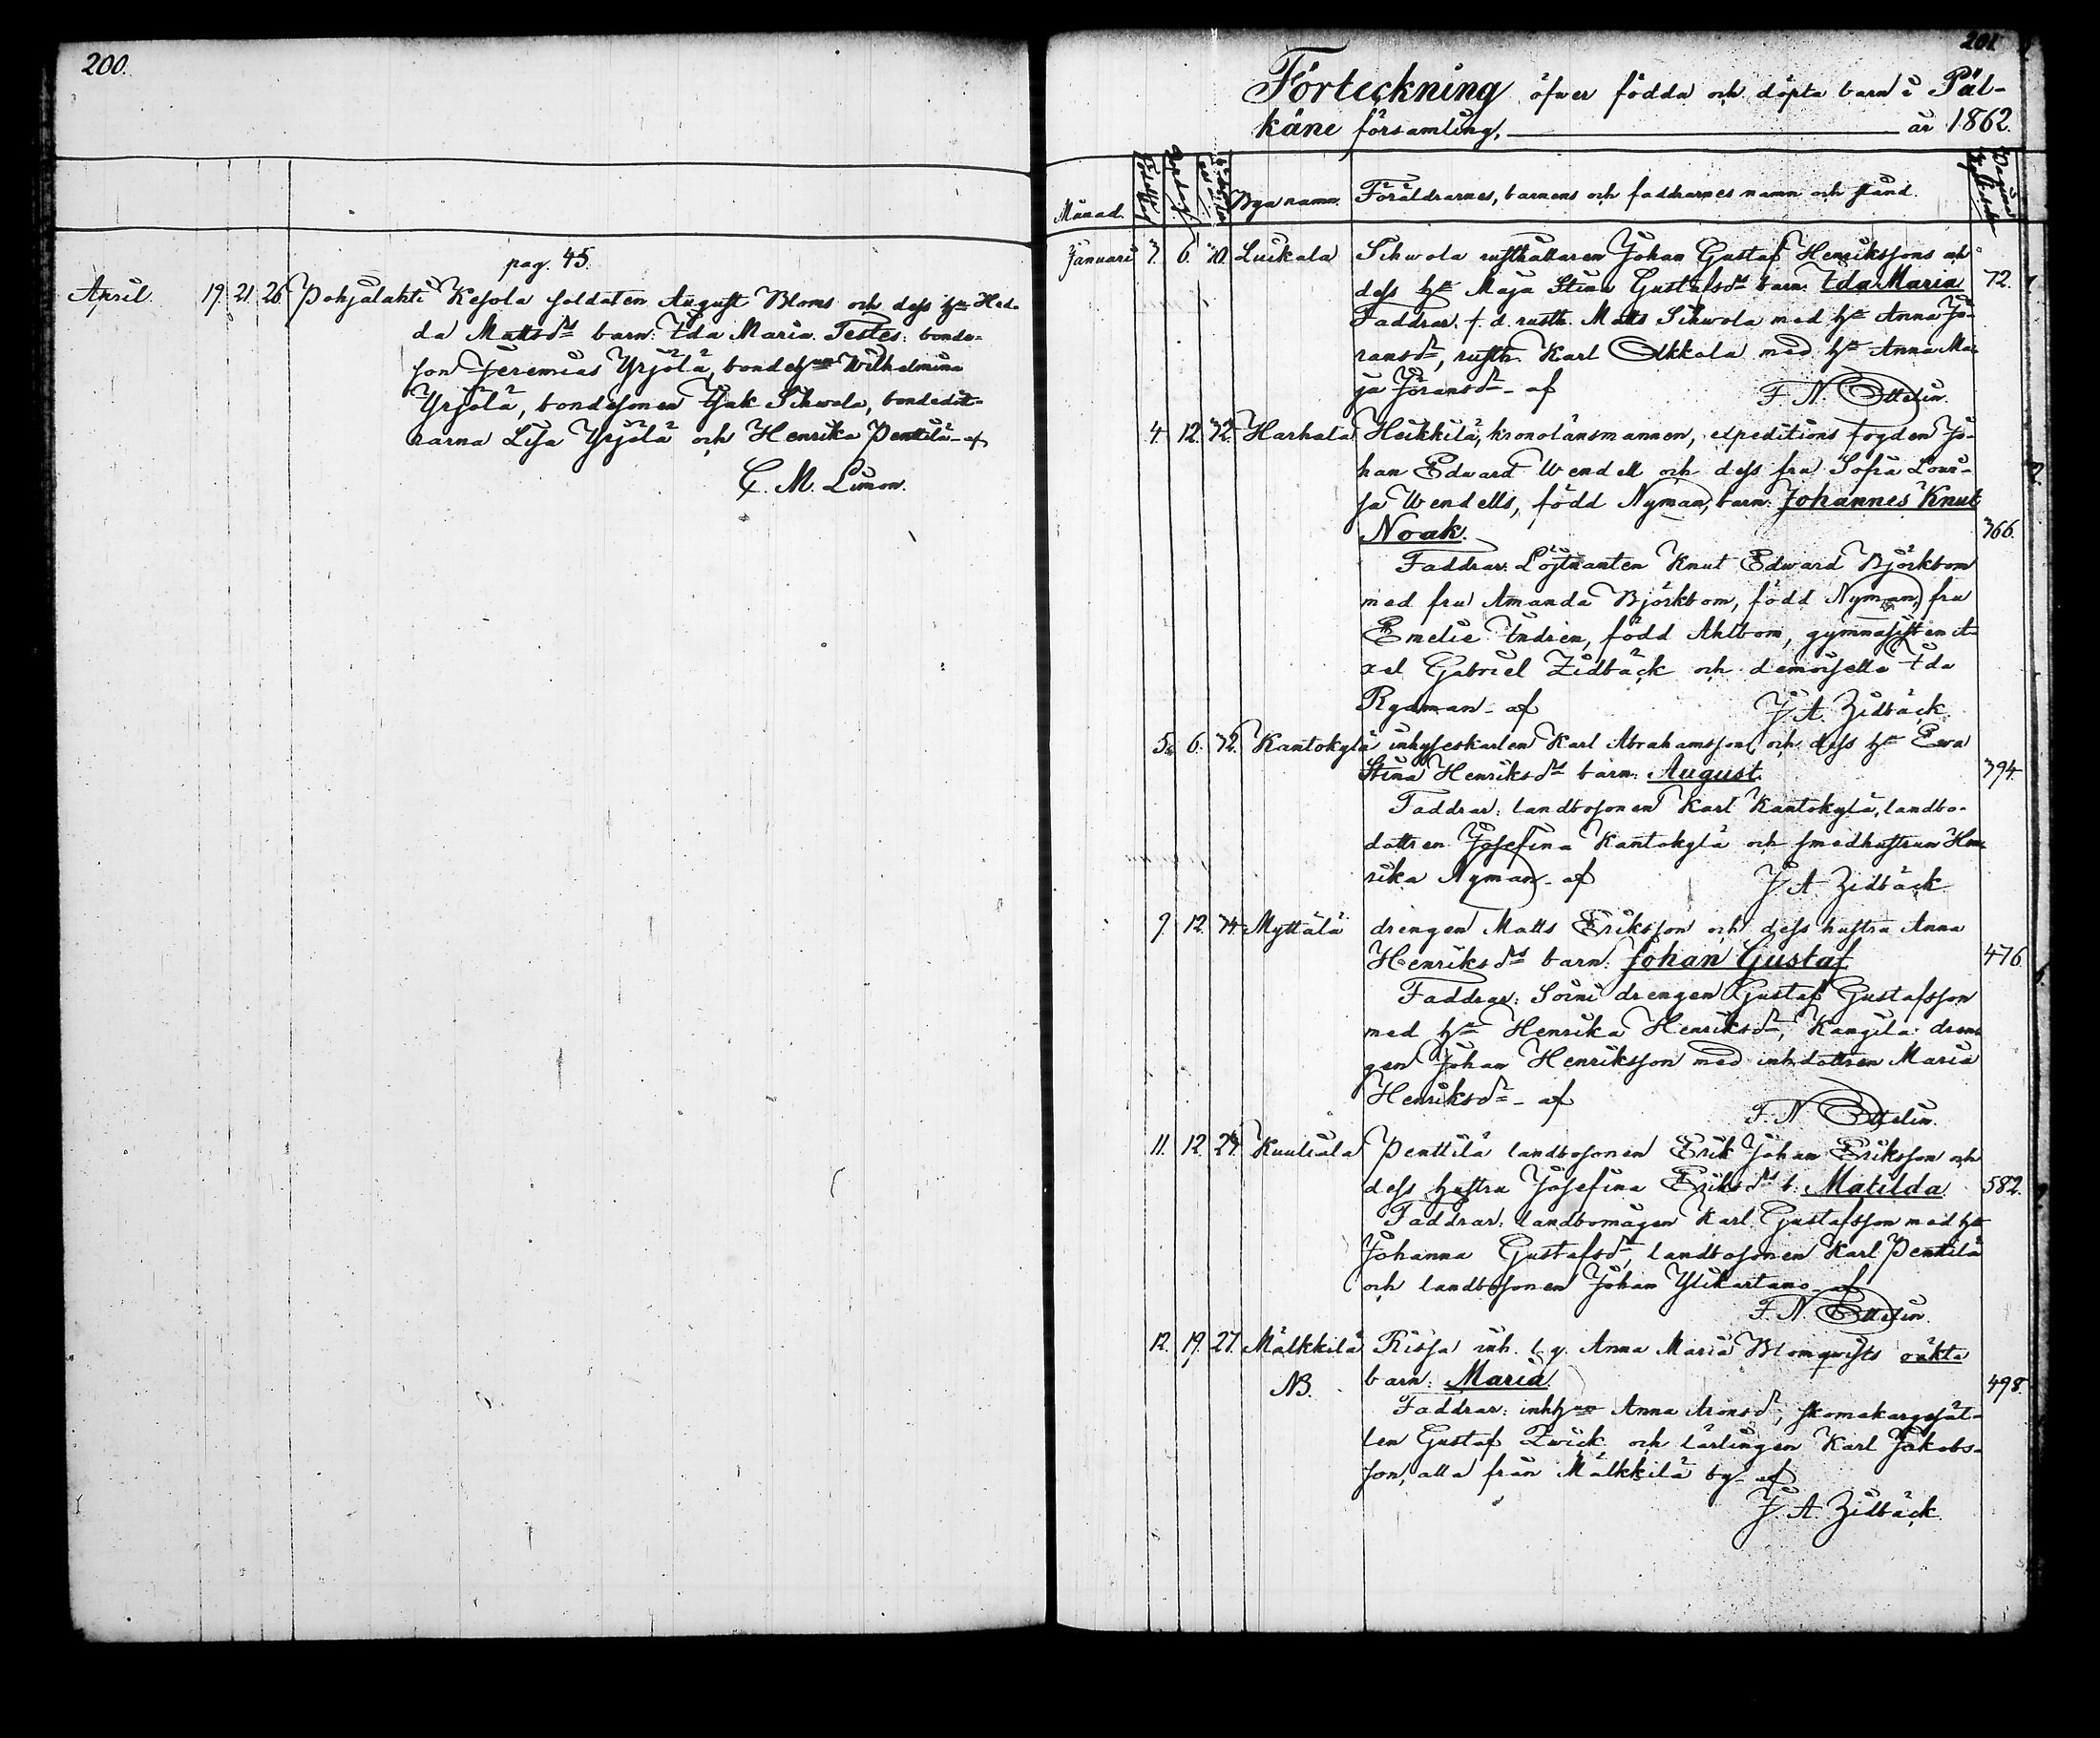 200.
pag. 45.
April. 19. 21. 26. Pohjalahti Kesola soldaten August Bloms och dess h:u Hed-
da Mattsd:rs barn: Ida Maria. Testes: bonde-
son Jeremias Yrjölä, bondeh:un Wilhelmina
Yrjölä, bondesonen Isak Sihwola, bondedöt-
rarna Lisa Yrjölä och Henrika Penttilä - af
C. M. Limon.
201
Förteckning öfwer födda och döpta barn i Päl-
käne församling, år 1862.
Månad. Byanamn. Föräldrarnes, barnens och faddrarnes namn och stånd.
Januari 6. Luikala Sihwola rusthållaren Johan Gustaf Henrikssons och
dess h:u Maja Stina Gustafsd:rs barn: Ida Maria 72.
Faddrar: f. d. rusth. Matts Sihwola med h:u Anna Jö-
ransd:r, rusth. Karl Olkkola med h:u Anna Ma-
ja Jöransd:r - af F. N. Ottelin.
4. 12. 32. Harhala Heikkilä, kronolänsmannen, expeditions fogden Jo-
han Edward Wendell och dess fru Sofia Loui-
sa Wendells, född Nyman, barn: Johannes Knut
Noak. 366.
Faddrar: Löjtnanten Knut Edward Björkbom
med fru Amanda Björkbom, född Nyman, fru
Emelie Indrén, född Ahlbom, gymnasisten A-
xel Gabriel Zidbäck och demoiselle Ida
Rydman - af J. A. Zidbäck.
5. 6. 32. Kantokylä inhyseskarlen Karl Abrahamsson och dess h:u Ewa
Stina Henriksd:rs barn: August. 394.
Faddrar: landbosonen Karl Kantokylä, landbo-
dottren Josefina Kantokylä och smedhustrun Hen-
rika Nyman - af J. A. Zidbäck
9. 12. 34. Myttälä drengen Matts Eriksson och dess hustru Anna
Henriksd:rs barn: Johan Gustaf 476.
Faddrar: Soini drengen Gustaf Gustafsson
med h:u Henrika Henriksd:r, Kangila dren-
gen Johan Henriksson med inh.dottren Maria
Henriksd:r - af
F. N. Ottelin.
11. 12. 24. Kuuliala Penttilä landbosonen Erik Johan Eriksson och
dess hustru Josefina Eriksd:rs b: Matilda. 582.
Faddrar: landbomågen Karl Gustafsson med h:u
Johanna Gustafsd:r, landbosonen Karl Penttilä
och landbosonen Johan Ylikartano - af
F. N. Ottelin.
12. 19. 27. Mälkkilä Rissa inh. l. q. Anna Maria Blomqvists oäkta
NB. barn: Maria. 498.
Faddrar: inhh:un Anna Aronsd:r, skomakargesäl-
len Gustaf Zwick och lärlingen Karl Jakobs-
son, alla från Mälkkilä by - af
J. A. Zidbäck.